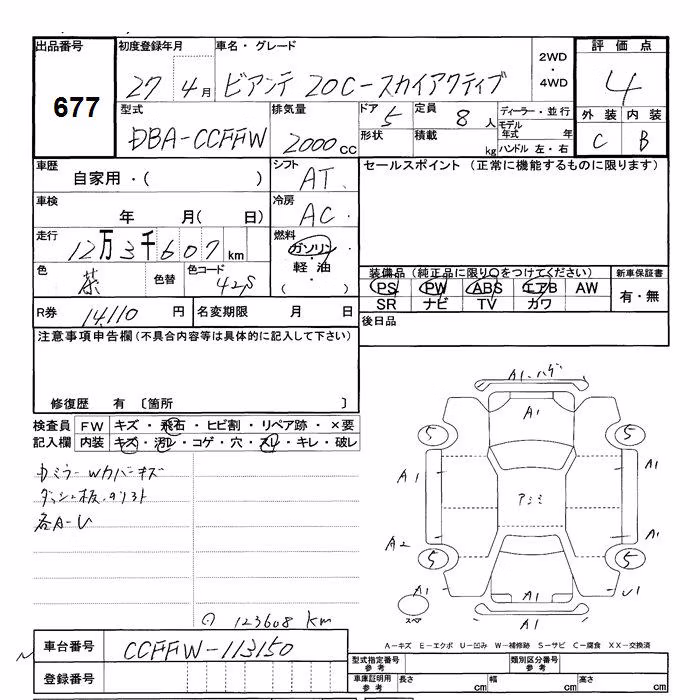 出品番号 初度登録年月 車名・グレード 2WD・4WD 評価点
677 27 4月 ビアンテ 20C-スカイアクティブ 4
型式 排気量 ドア 5 定員 8人 ディーラー・並行 外装 内装
DBA-CCFFW 2000cc 形状 積載 kg モデル年式 年 ハンドル 左・右 C B
車歴 自家用・( ) シフト AT セールスポイント (正常に機能するものに限ります)
車検 年 月( 日) 冷房 AC
走行 12万3千607km 燃料 ガソリン・軽油・( )
色 茶 色替 色コード 42S 装備品(純正品に限り○をつけてください) 新車保証書
PS PW ABS エアB AW 有・無
SR ナビ TV カワ
R券 14110円 名変期限 月 日 後日品
注意事項申告欄(不具合内容等は具体的に記入して下さい)
修復歴 有 〔箇所 〕
検査員 FW キズ・飛石・ヒビ割・リペア跡・×要
記入欄 内装 キズ・汚レ・コゲ・穴・スレ・キレ・破レ
ミラーWカバーキズ
各A-U
A1ハゲ
A1
5 5
A1 A1
アミ
A2 A1
5 5
A1 A1 U1
スペア A1
123608km
車台番号 CCFFW-113150
A-キズ E-エクボ U-凹み W-補修跡 S-サビ C-腐食 XX-交換済
登録番号
型式指定番号 参考 類別区分番号 参考
車庫証明用 参考 長さ cm 幅 cm 高さ cm